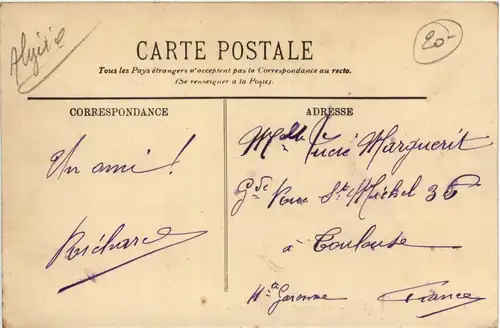 Algérie
20-
CARTE POSTALE
Tous les Pays étrangers n'acceptent pas la Correspondance au recto.
(Se renseigner à la Poste).
CORRESPONDANCE
Un ami !
Richard
ADRESSE
Mlle Lucie Marguerit
Gde Rue St Michel 36
à Toulouse
Hte Garonne
France